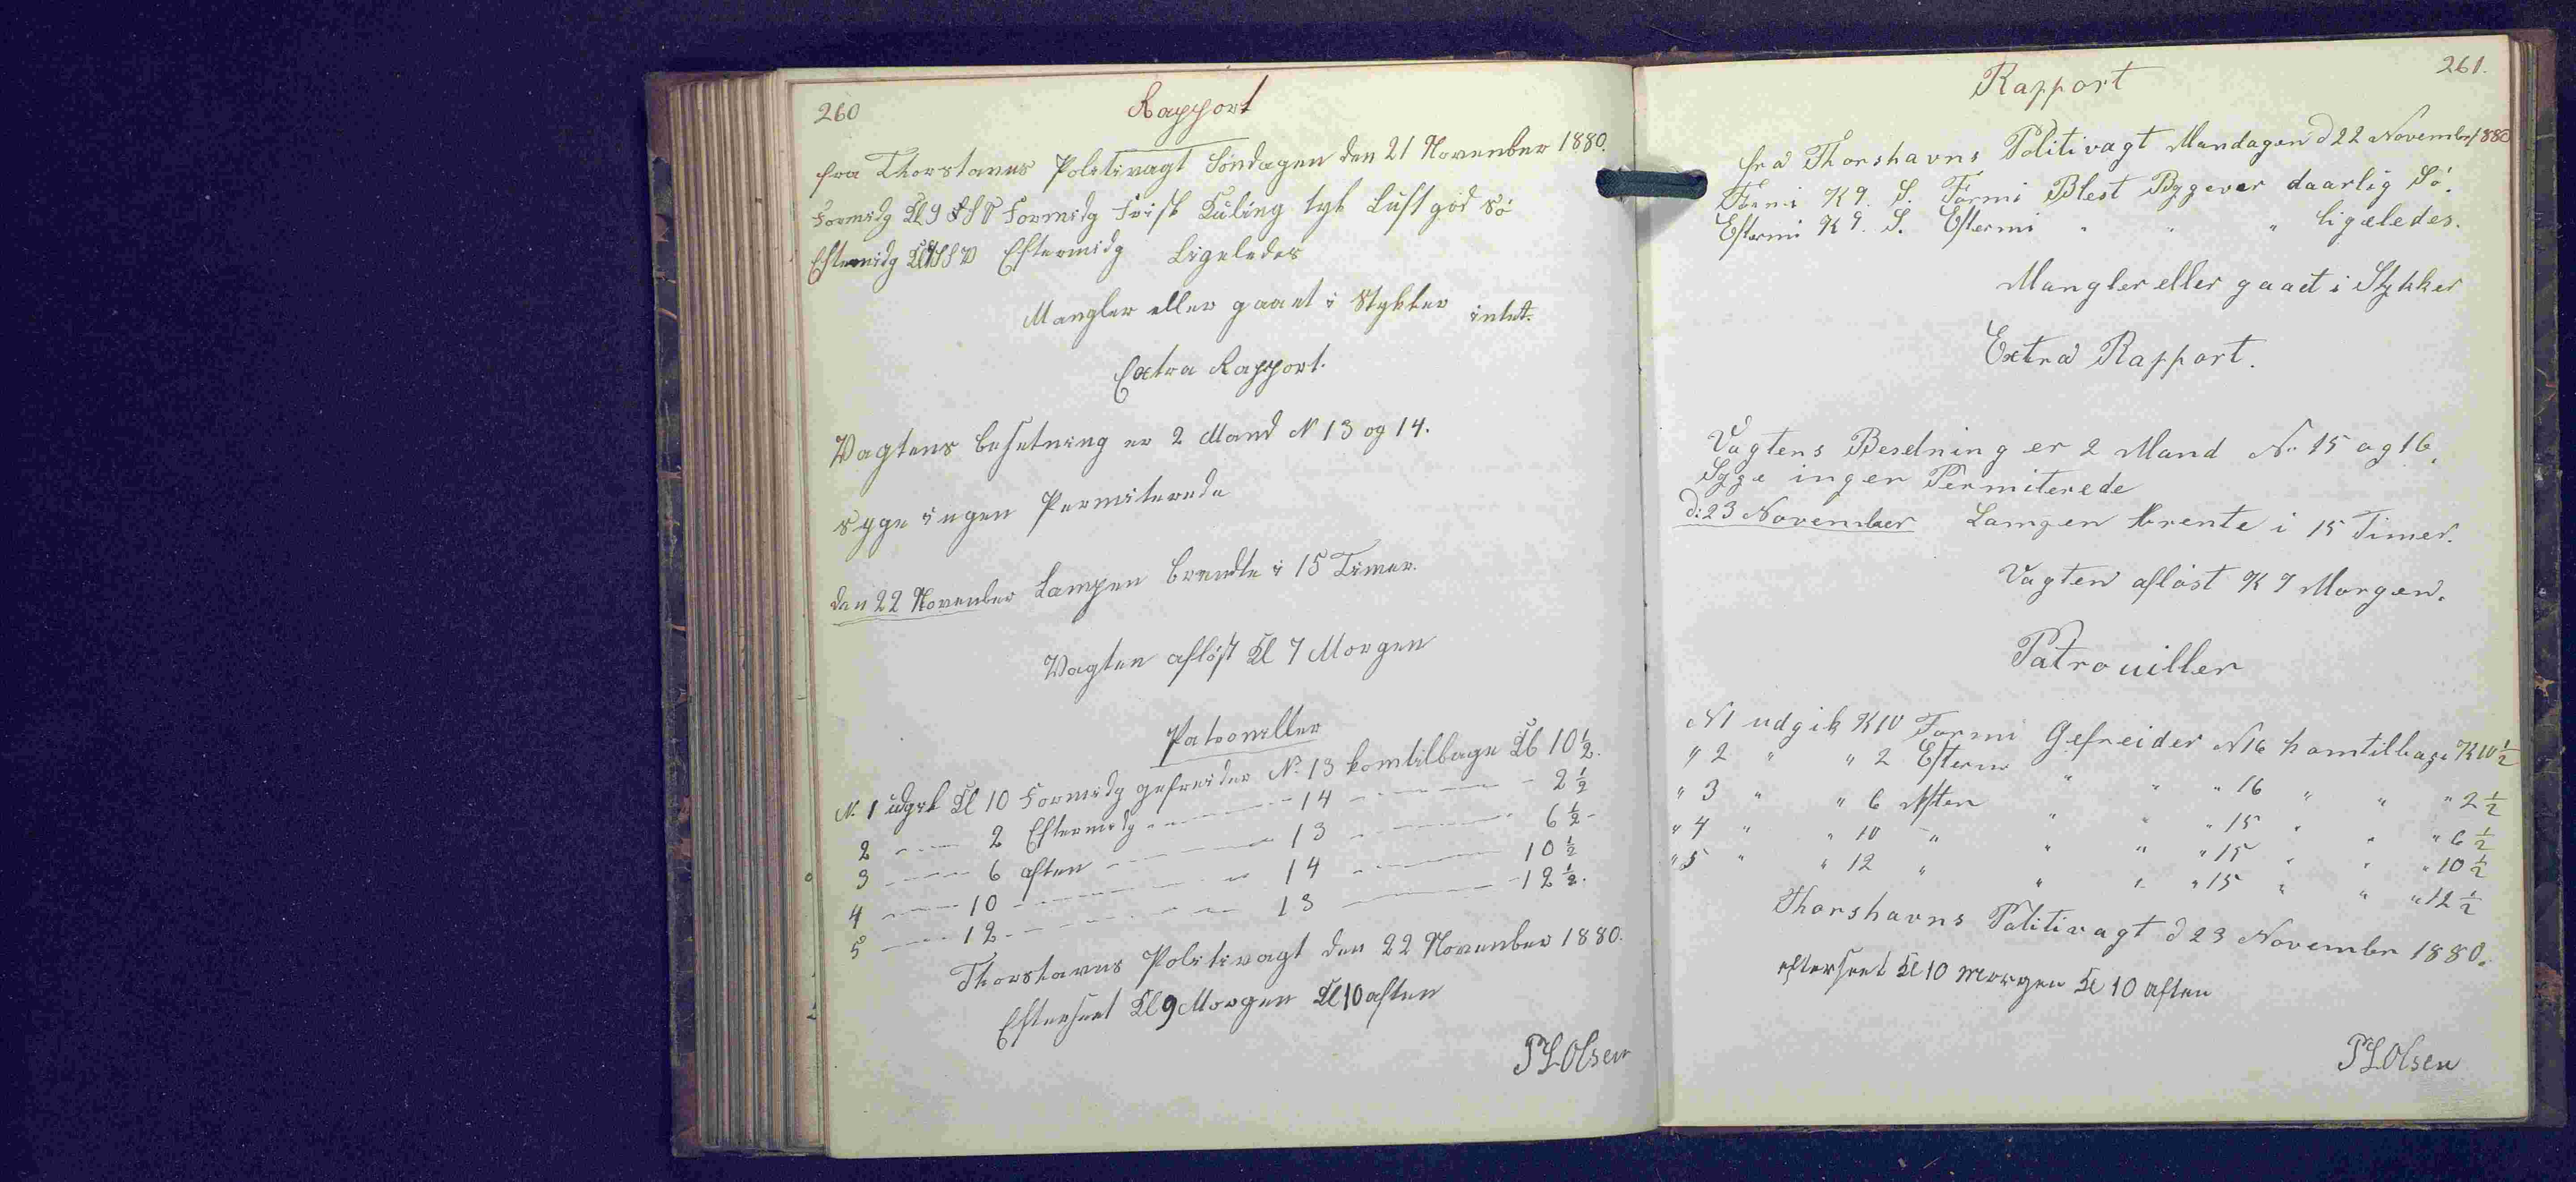 260
Rapport
fra Thorshavns Politivagt Söndagen den 21 November 1880.
Formidg Kl 9 Formidg Frisk Kuling tyk Luft god Sö
Eftermidg Eftermidg Ligeledes
Mangler eller gaaet i Stykker intet.
Extra Rapport.
Vagtens besetning er 2 Mand N 13 og 14.
Syge ingen Permiterede
den 22 November Lampen brendte i 15 Timer.
Vagten aflöst Kl 7 Morgen
Patrouiller
N. 1 udgik Kl 10 Formidg gefreider No. 13 komtilbage Kl 10 ½.
2 — 2 Eftermidg — 14 — 2 ½
3 — 6 aften — 13 — 6 ½ -
4 — 10 — 14 — 10 ½
5 — 12 — 13 — 12 ½.
Thorshavns Politivagt den 22 November 1880.
Efterseet Kl 9 Morgen Kl 10 aften
PLOlsen
261.
Rapport
fra Thorshavns Politivagt Mandagen d 22 Novembr 1880
Formi K 9. S. Formi Blest Byggever daarlig Sö.
Eftermi K 9. S. Eftermi " " " ligæledes.
Mangler eller gaaet i Stykker
Extra Rapport.
Vagtens Besedning er 2 Mand No 15 og 16.
Syge ingen Permiterede
d: 23 November Lampen brente i 15 Timer.
Vagten aflöst K 7 Morgen.
Patrouiller
N 1 udgik K 10 Formi Gefreider N 16 komtilbage K 10 ½
" 2 " " 2 Efterm " " " 16 " " " 2 ½
" 3 " " 6 Aften " " " 15 " " " 6 ½
" 4 " " 10 " " " " 15 " " " 10 ½
" 5 " " 12 " " " " 15 " " " 12 ½
Thorshavns Politivagt d 23 Novembr 1880.
efterseet Kl 10 Morgen Kl 10 aften
PLOlsen